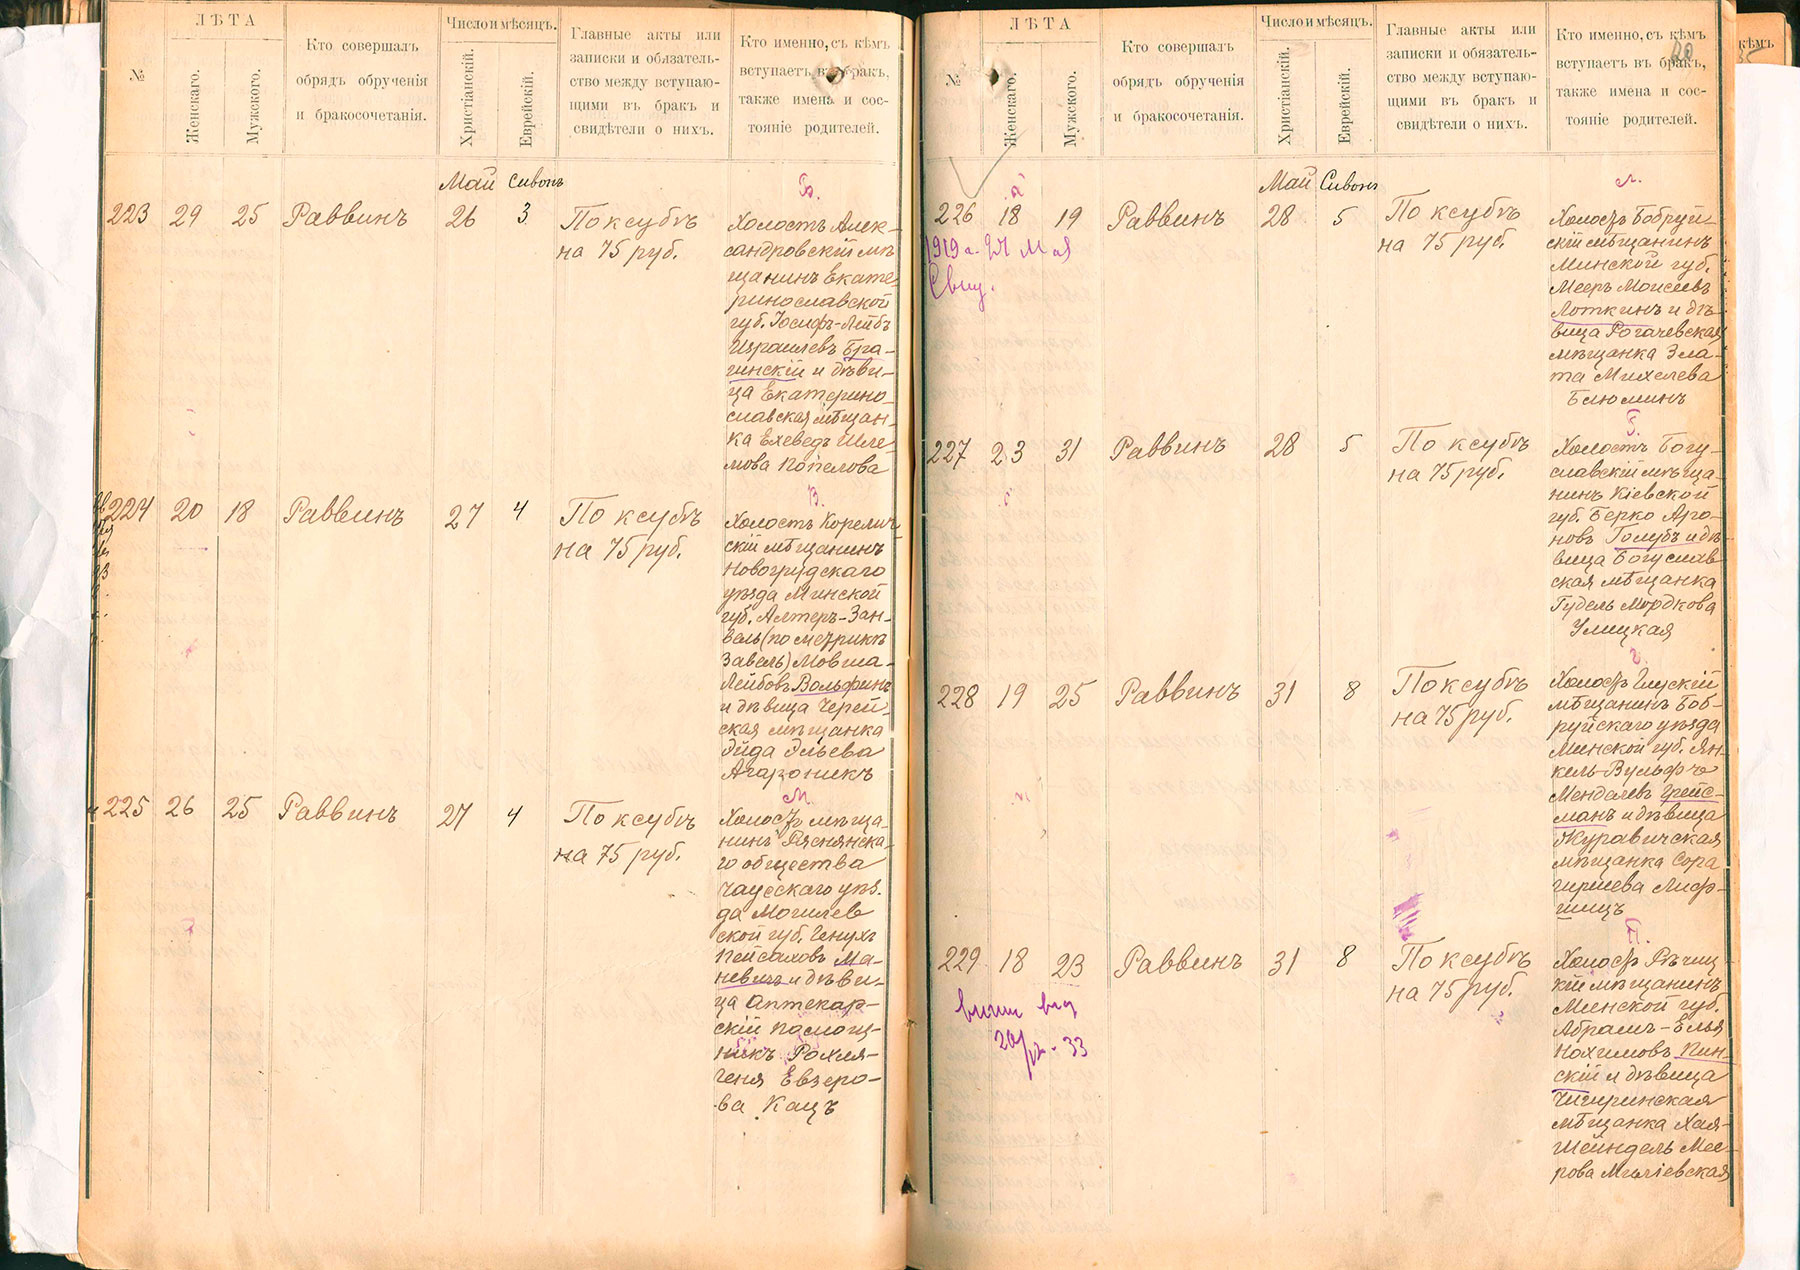 ЛѢТА
Число и мѣсяцъ.
№
Женскаго.
Мужского.
Кто совершалъ
обрядъ обрученія
и бракосочетанія.
Христіанскій.
Еврейскій.
Главные акты или
записки и обязатель-
ство между вступаю-
щими въ бракъ и
свидѣтели о нихъ.
Кто именно, съ кѣмъ
вступаетъ въ бракъ,
также имена и сос-
тояніе родителей.
Май Сивонъ
Б.
223 29 25 Раввинъ 26 3 По ксубѣ
на 75 руб.
Холостъ Алек-
сандровскій мѣ
щанинъ Екате-
ринославской
губ. Іосифъ-Лейбъ
Израилевъ Бра-
гинскій и дѣви-
ца Екатерино-
славская мѣщан-
ка Ехеведъ Шле-
мова Копелова
В.
224 20 18 Раввинъ 27 4 По ксубѣ
на 75 руб.
Холостъ Корелич
скій мѣщанинъ
Новогрудскаго
уѣзда Минской
губ. Алтеръ-Зан-
вель (по метрикѣ
Завель) Мовша-
Лейбовъ Вольфинъ
и дѣвица Черей-
ская мѣщанка
Эйда Эльева
Агароникъ
М.
225 26 25 Раввинъ 27 4 По ксубѣ
на 75 руб.
Холостъ мѣща-
нинъ Ряснянска-
го общества
Чаусскаго уѣз-
да Могилев
ской губ. Генухъ
Пейсаховъ Ма-
невичъ и дѣви-
ца аптекар-
скій помощ-
никъ Рохля-
Геня Евзеро-
ва Кацъ
ЛѢТА
Число и мѣсяцъ.
№
Женскаго.
Мужского.
Кто совершалъ
обрядъ обрученія
и бракосочетанія.
Христіанскій.
Еврейскій.
Главные акты или
записки и обязатель-
ство между вступаю-
щими въ бракъ и
свидѣтели о нихъ.
Кто именно, съ кѣмъ
вступаетъ въ бракъ,
также имена и сос-
тояніе родителей.
кѣмъ
Май Сивонъ
Л.
226 18 19 Раввинъ 28 5 По ксубѣ
на 75 руб.
1919 г. 24 Мая
Холостъ Бобруй-
скій мѣщанинъ
Минской губ.
Мееръ Моисеевъ
Лоткинъ и дѣ-
вица Рогачевская
мѣщанка Зла-
та Михелева
Блюминъ
Г.
227 23 31 Раввинъ 28 5 По ксубѣ
на 75 руб.
Холостъ Богу-
славскій мѣща-
нинъ Кіевской
губ. Берко Аро-
новъ Голубъ и дѣ-
вица Богуслав
ская мѣщанка
Гудель Мордкова
Улицкая
Г.
228 19 25 Раввинъ 31 8 По ксубѣ
на 75 руб.
Холостъ Глускій
мѣщанинъ Боб-
руйскаго уѣзда
Минской губ. Ян-
кель-Вульфъ
Менделевъ Грейс-
манъ и дѣвица
Журавичская
мѣщанка Сора
Гиршева Лиф-
шицъ
П.
229 18 23 Раввинъ 31 8 По ксубѣ
на 75 руб.
Холостъ Рѣчиц-
кій мѣщанинъ
Минской губ.
Абрамъ-Елья
Нохимовъ Пин-
скій и дѣвица
Чигиринская
мѣщанка Хая-
Шейндель Мее-
рова Мгліевская